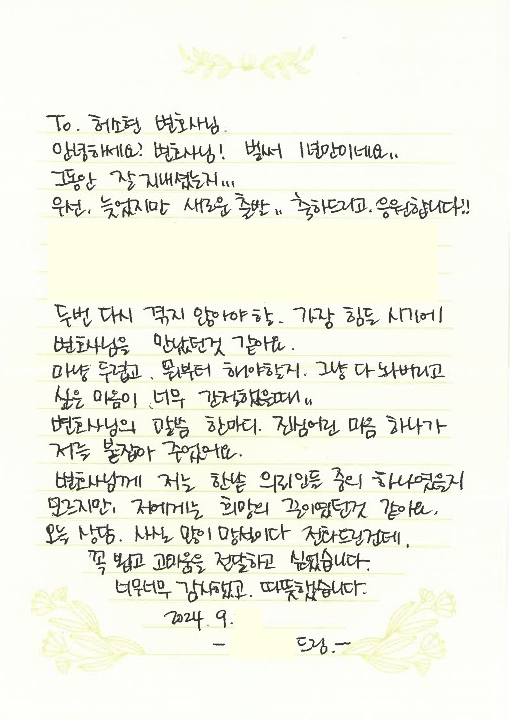 To. 허소현 변호사님.
안녕하세요? 변호사님! 벌써 1년만이네요..
그동안 잘 지내셨는지...
우선, 늦었지만 새로운 출발.. 축하드리고. 응원합니다!!
두번 다시 겪지 않아야 할. 가장 힘든 시기에
변호사님을 만났던것 같아요.
마냥 두렵고. 뭘부터 해야할지. 그냥 다 놔버리고
싶은 마음이 너무 간절했을때..
변호사님의 말씀 한마디. 진심어린 마음 하나가
저를 붙잡아 주었어요.
변호사님께 저는 한낱 의뢰인들 중의 하나였을지
모르지만, 저에게는 희망의 끈이였던것 같아요.
오늘 상담. 사실 많이 망설이다 전화드린건데.
꼭 뵙고 고마움을 전달하고 싶었습니다.
너무너무 감사했고. 따뜻했습니다.
2024. 9.
- 드림.~